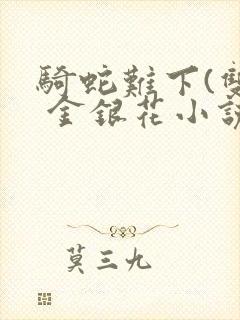 騎蛇難下(雙
金銀花小說
莫三九